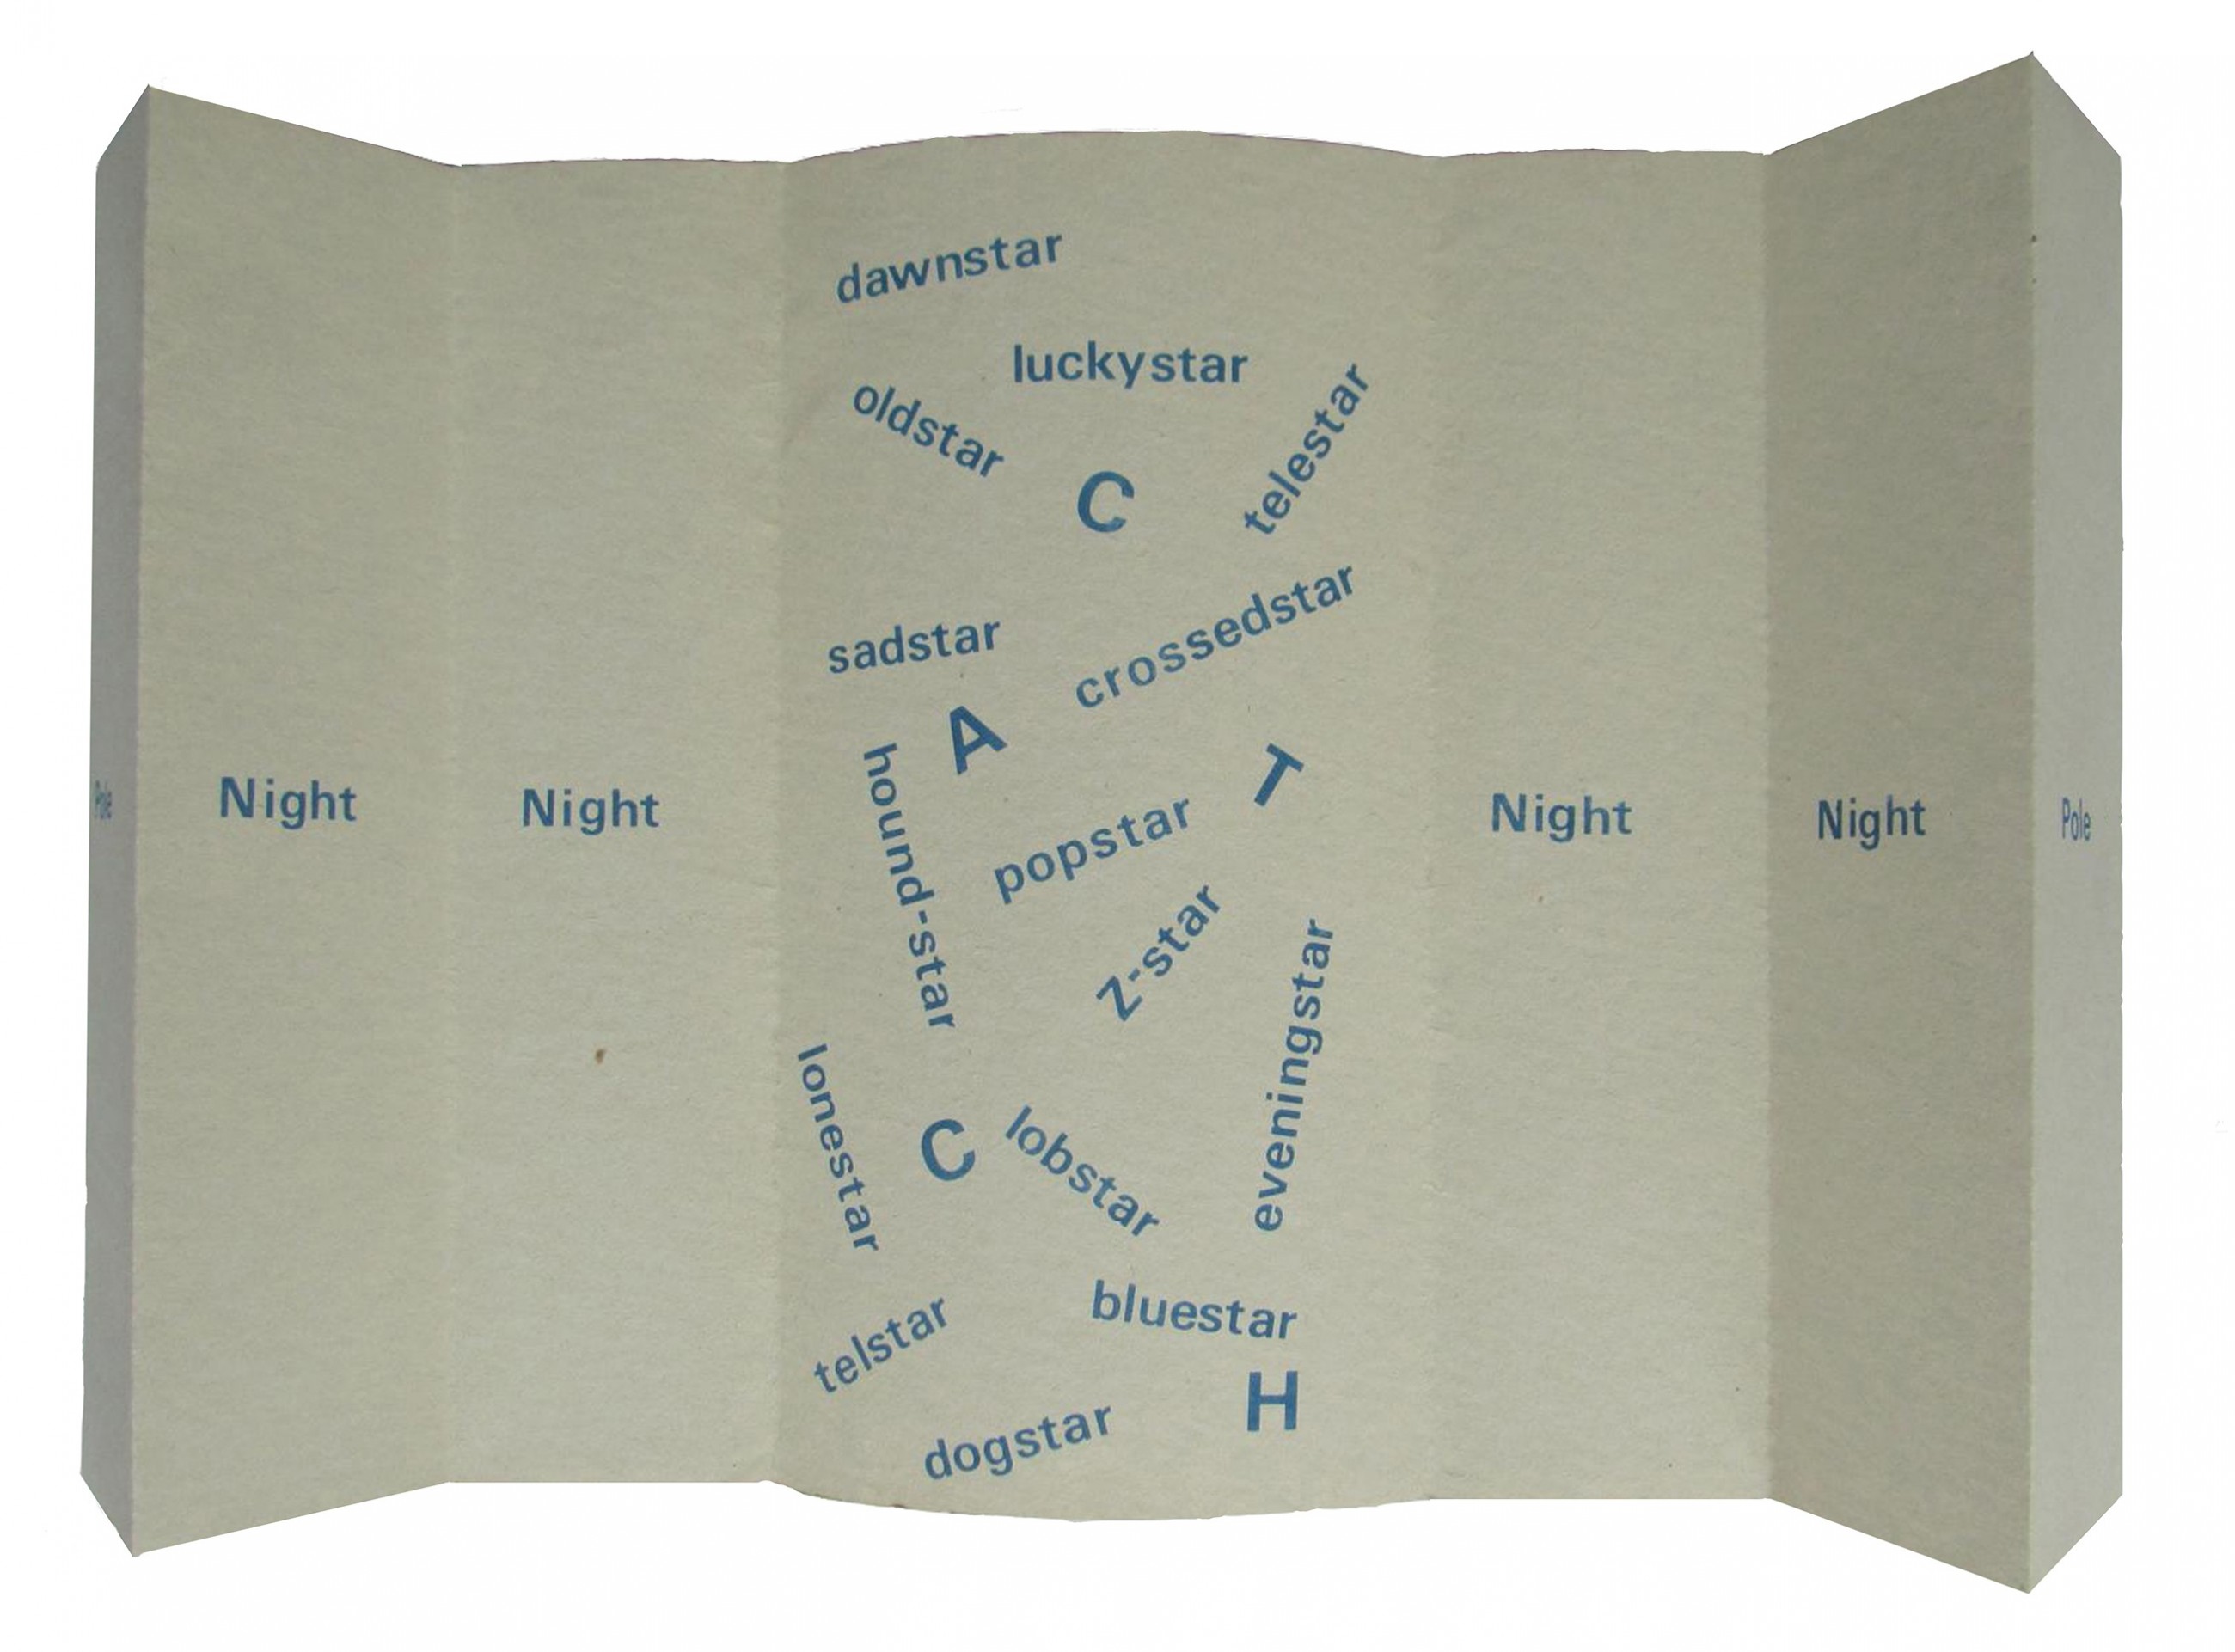 Pole
Night
Night
dawnstar
luckystar
oldstar
telestar
C
crossedstar
sadstar
A
T
hound-star
popstar
z-star
eveningstar
lonestar
C
lobstar
bluestar
telstar
H
dogstar
Night
Night
Pole